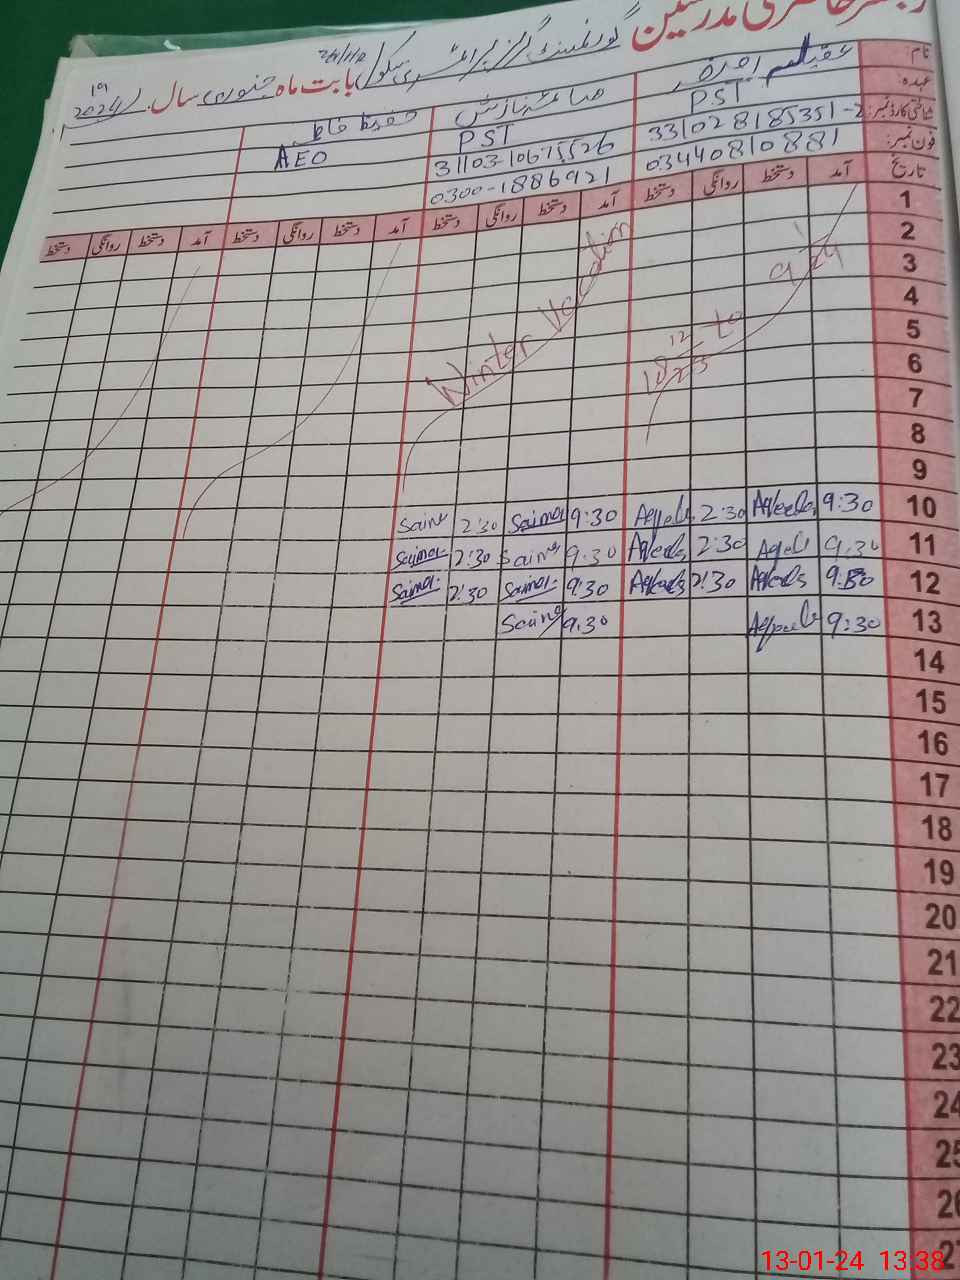 رجسٹر حاضری مدرسین گورنمنٹ گرلز پرائمری سکول 24/11/2 بابت ماہ جنوری سال 2024
نام:
عہدہ: PST PST AEO
شناختی کارڈ نمبر: 331028185351-2 3110310675526
فون نمبر: 03440810881 0300-1886921
تاریخ آمد دستخط روانگی دستخط آمد دستخط روانگی دستخط آمد دستخط روانگی دستخط آمد دستخط روانگی دستخط
1
2
3
4
5
6
7
8
9
Winter Vacation
18 12/23 to 9/1/24
10 9:30 Aqeela 2:30 Aqeela 9:30 Saima 2:30 Saima
11 9:30 Aqeela 2:30 Aqeela 9:30 Saima 2:30 Saima
12 9:30 Aqeela 2:30 Aqeela 9:30 Saima 2:30 Saima
13 9:30 Aqeela 9:30 Saima
14
15
16
17
18
19
20
21
22
23
24
25
26
27
13-01-24 13:38